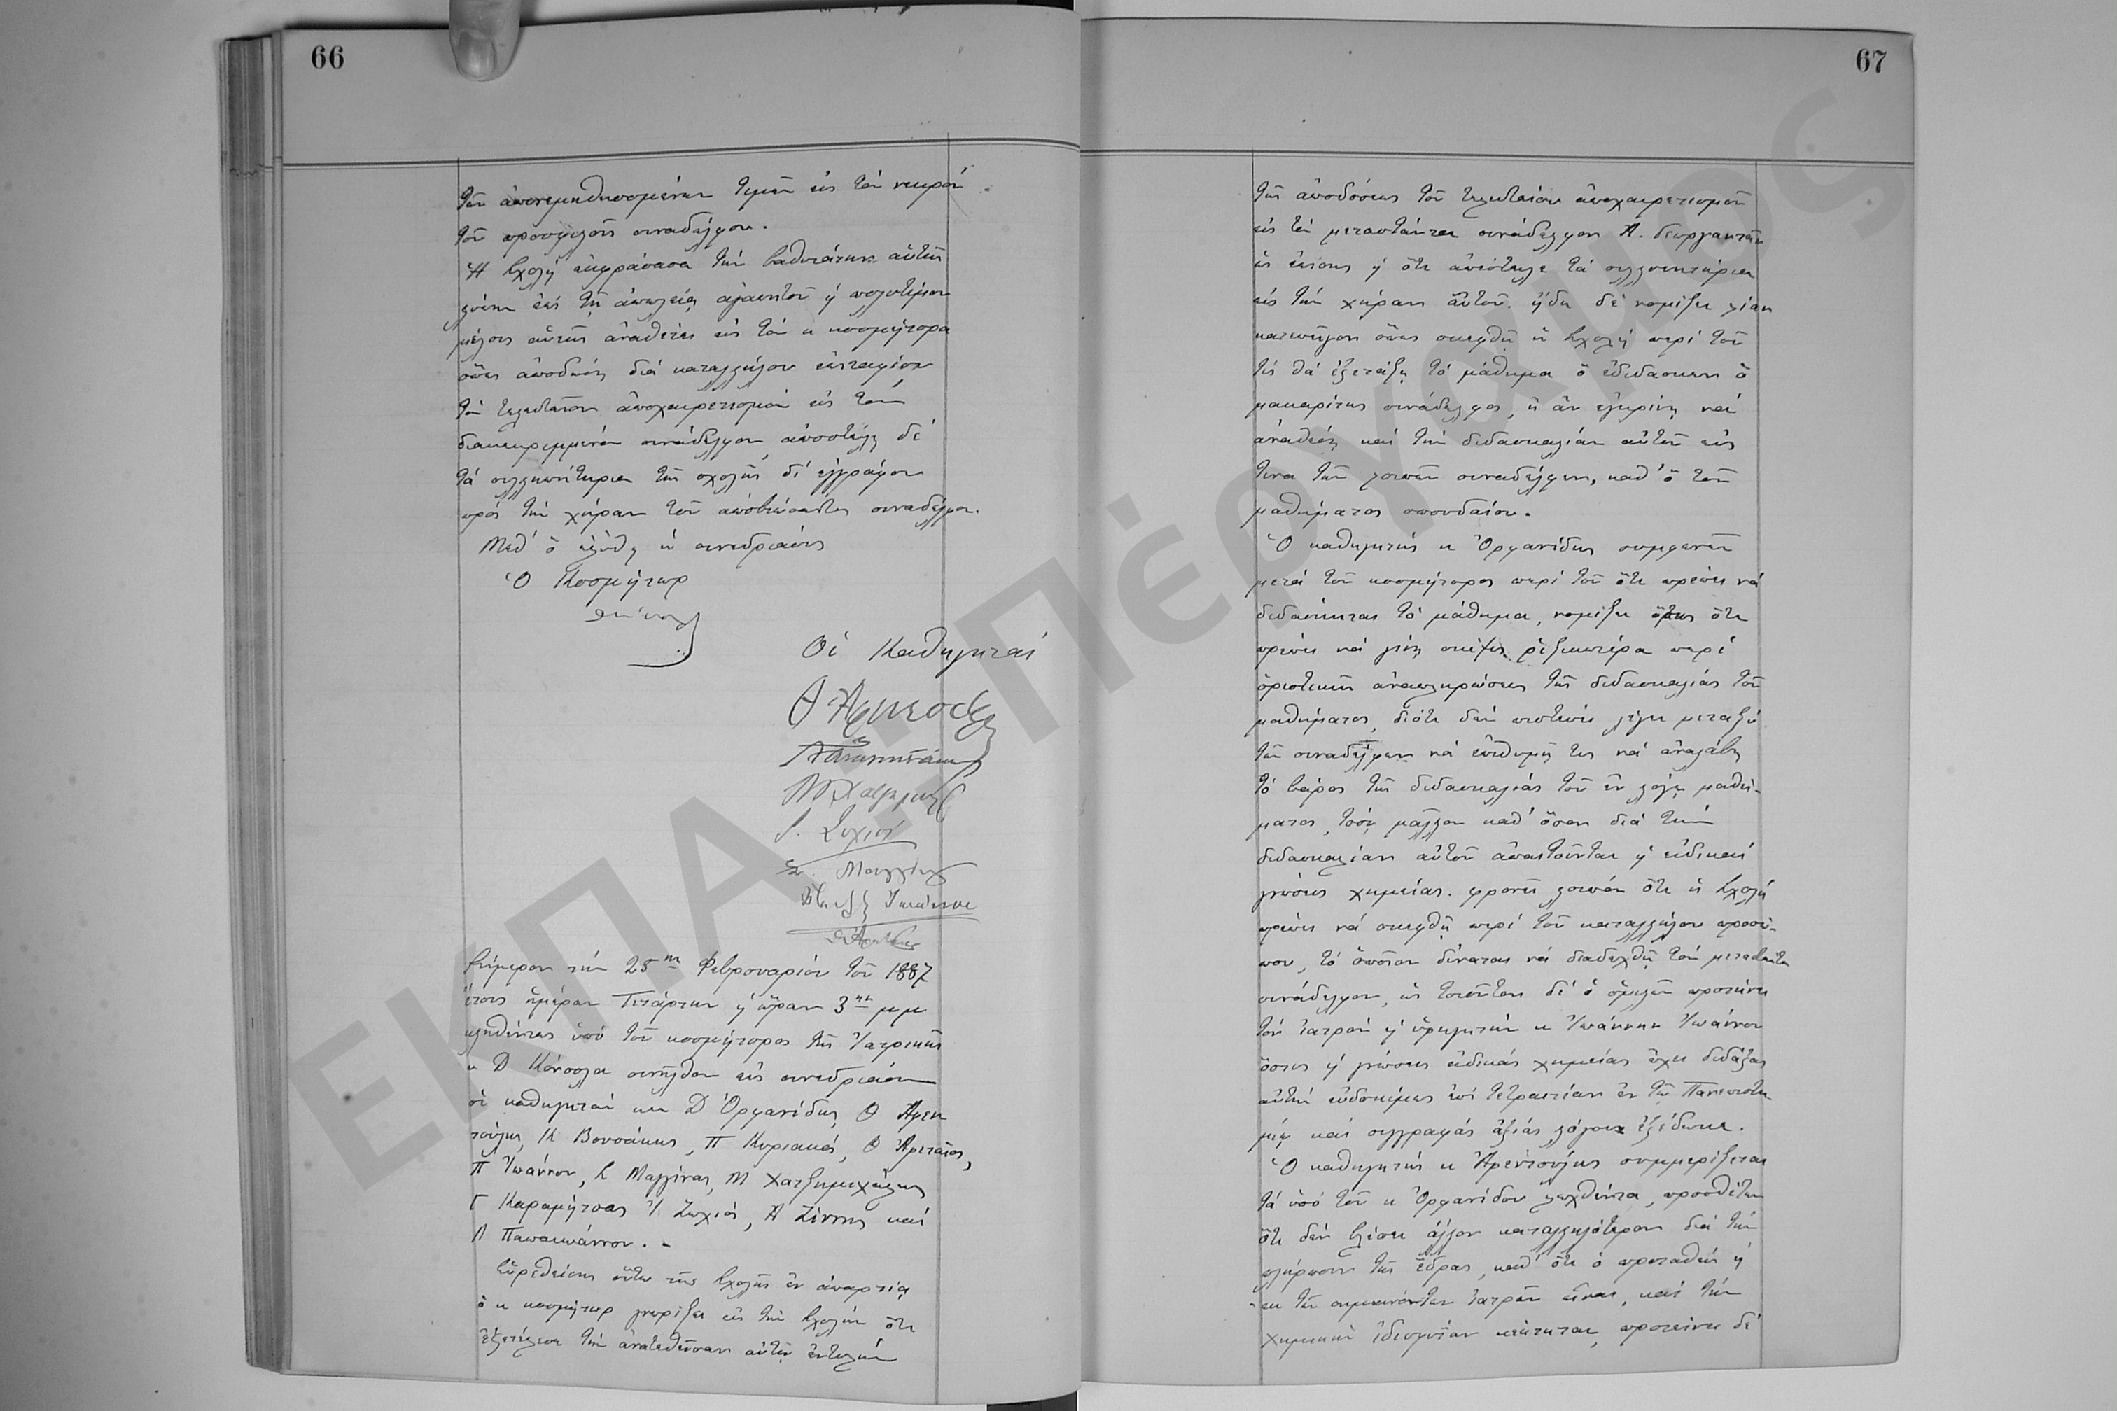 66
τῶν ἀπονεμηθησομένων τιμῶν εἰς τὸν νεκρὸν
τοῦ προσφιλοῦς συναδέλφου.
Ἡ Σχολὴ ἐκφράσασα τὴν βαθυτάτην αὐτῆς
λύπην ἐπὶ τῇ ἀπωλείᾳ ἀγαπητοῦ ἢ πολυτίμου
μέλους αὐτῆς ἀναθέτει εἰς τὸν κ κοσμήτορα
ὅπως ἀποδώσῃ διὰ καταλλήλου ἐπιταφίου
τὸν τελευταῖον ἀποχαιρετισμὸν εἰς τὸν
διακεκριμμένον συνάδελφον, ἀποστείλῃ δὲ
τὰ συλλυπητήρια τῆς σχολῆς δι' ἐγγράφου
πρὸς τὴν χήραν τοῦ ἀποβιώσαντος συναδέλφου.
Μεθ' ὃ ἐλύθη ἡ συνεδρίασις
Ὁ Κοσμήτωρ
Οἱ Καθηγηταὶ
Σήμερον τὴν 25ην Φεβρουαρίου τοῦ 1887
ἔτους ἡμέραν Τετάρτην ἢ ὥραν 3ην μμ
κληθέντες ὑπὸ τοῦ κοσμήτορος τῆς Ἰατρικῆς
κ Δ Κόνσολα συνῆλθον εἰς συνεδρίασιν
οἱ καθηγηταὶ κκ Δ Ὀρφανίδης, Θ Ἀφεν
τούλης, Κ Βουσάκις, Π Κυριακός, Θ Ἀρεταῖος,
Π Ἰωάννου, Σ Μαγγίνας, Μ Χατζημιχάλης
Γ Καραμήτσας Ἰ Ζωχιός, Α Ζίννης καὶ
Λ Παπαϊωάννου. -
Εὑρεθείσης οὕτω τῆς Σχολῆς ἐν ἀπαρτίᾳ
ὁ κ κοσμήτωρ γνωρίζει εἰς τὴν Σχολὴν ὅτι
ἐξετέλεσε τὴν ἀνατεθεῖσαν αὐτῷ ἐντολὴν
67
τῆς ἀποδόσεως τοῦ τελευταίου ἀποχαιρετισμοῦ
εἰς τὸν μεταστάντα συνάδελφον Α. Γεωργαντᾶν
ὡς ἐπίσης ἢ ὅτι ἀπέστειλε τὰ συλλυπητήρια
εἰς τὴν χήραν αὐτοῦ. ἤδη δὲ νομίζει λίαν
κατεπεῖγον ὅπως σκεφθῇ ἡ Σχολὴ περὶ τοῦ
τίς θὰ ἐξετάζῃ τὸ μάθημα ὃ ἐδίδασκεν ὁ
μακαρίτης συνάδελφος, ἢ ἂν ἐγκρίνῃ καὶ
ἀναθέσῃ καὶ τὴν διδασκαλίαν αὐτοῦ εἰς
τινα τῶν λοιπῶν συναδέλφων, καθ' ὃ τοῦ
μαθήματος σπουδαίου.
Ὁ καθηγητὴς κ Ὀρφανίδης συμφωνεῖ
μετὰ τοῦ κοσμήτορος περὶ τοῦ ὅτι πρέπει νὰ
διδάσκηται τὸ μάθημα, νομίζει ὅμως ὅτι
πρέπει νὰ γίνῃ σκέψις ῥιζικωτέρα περὶ
ὁριστικῆς ἀναπληρώσεως τῆς διδασκαλίας τοῦ
μαθήματος, διότι δὲν πιστεύει λέγει μεταξὺ
τῶν συναδέλφων νὰ ἐπιθυμῇ τις νὰ ἀναλάβῃ
τὸ βάρος τῆς διδασκαλίας τοῦ ἐν λόγῳ μαθή-
ματος, τόσῳ μᾶλλον καθ' ὅσον διὰ τὴν
διδασκαλίαν αὐτοῦ ἀπαιτοῦνται ἢ εἰδικαὶ
γνώσεις χημείας. φρονεῖ λοιπὸν ὅτι ἡ Σχολὴ
πρέπει νὰ σκεφθῇ περὶ τοῦ καταλλήλου προσώ-
που, τὸ ὁποῖον δύναται νὰ διαδεχθῇ τὸν μεταστάντα
συνάδελφον, ὡς τοιοῦτον δὲ ὁ ὁμιλῶν προτείνει
τὸν ἰατρὸν ἢ ὑφηγητὴν κ Ἰωάννην Ἰωάννου
ὅστις ἢ γνώσεις εἰδικὰς χημείας ἔχει διδάξας
αὐτὴν εὐδοκίμως ἐπὶ τετραετίαν ἐν τῷ Πανεπιστη-
μίῳ καὶ συγγραφὰς ἀξίας λόγου ἐξέδωκε.
Ὁ καθηγητὴς κ Ἀφεντούλης συμμερίζεται
τὰ ὑπὸ τοῦ κ Ὀρφανίδου λεχθέντα, προσθέτων
ὅτι δὲν βλέπει ἄλλον καταλληλότερον διὰ τὴν
πλήρωσιν τῆς ἕδρας, καθ' ὅτι ὁ προταθεὶς ἢ
ἐκ τῶν σημαινόντων ἰατρῶν εἶναι, καὶ τὴν
χημικὴν ἰδιοφυΐαν κέκτηται, προτείνει δὲ
ΕΚΠΑ :: Πέργαμος